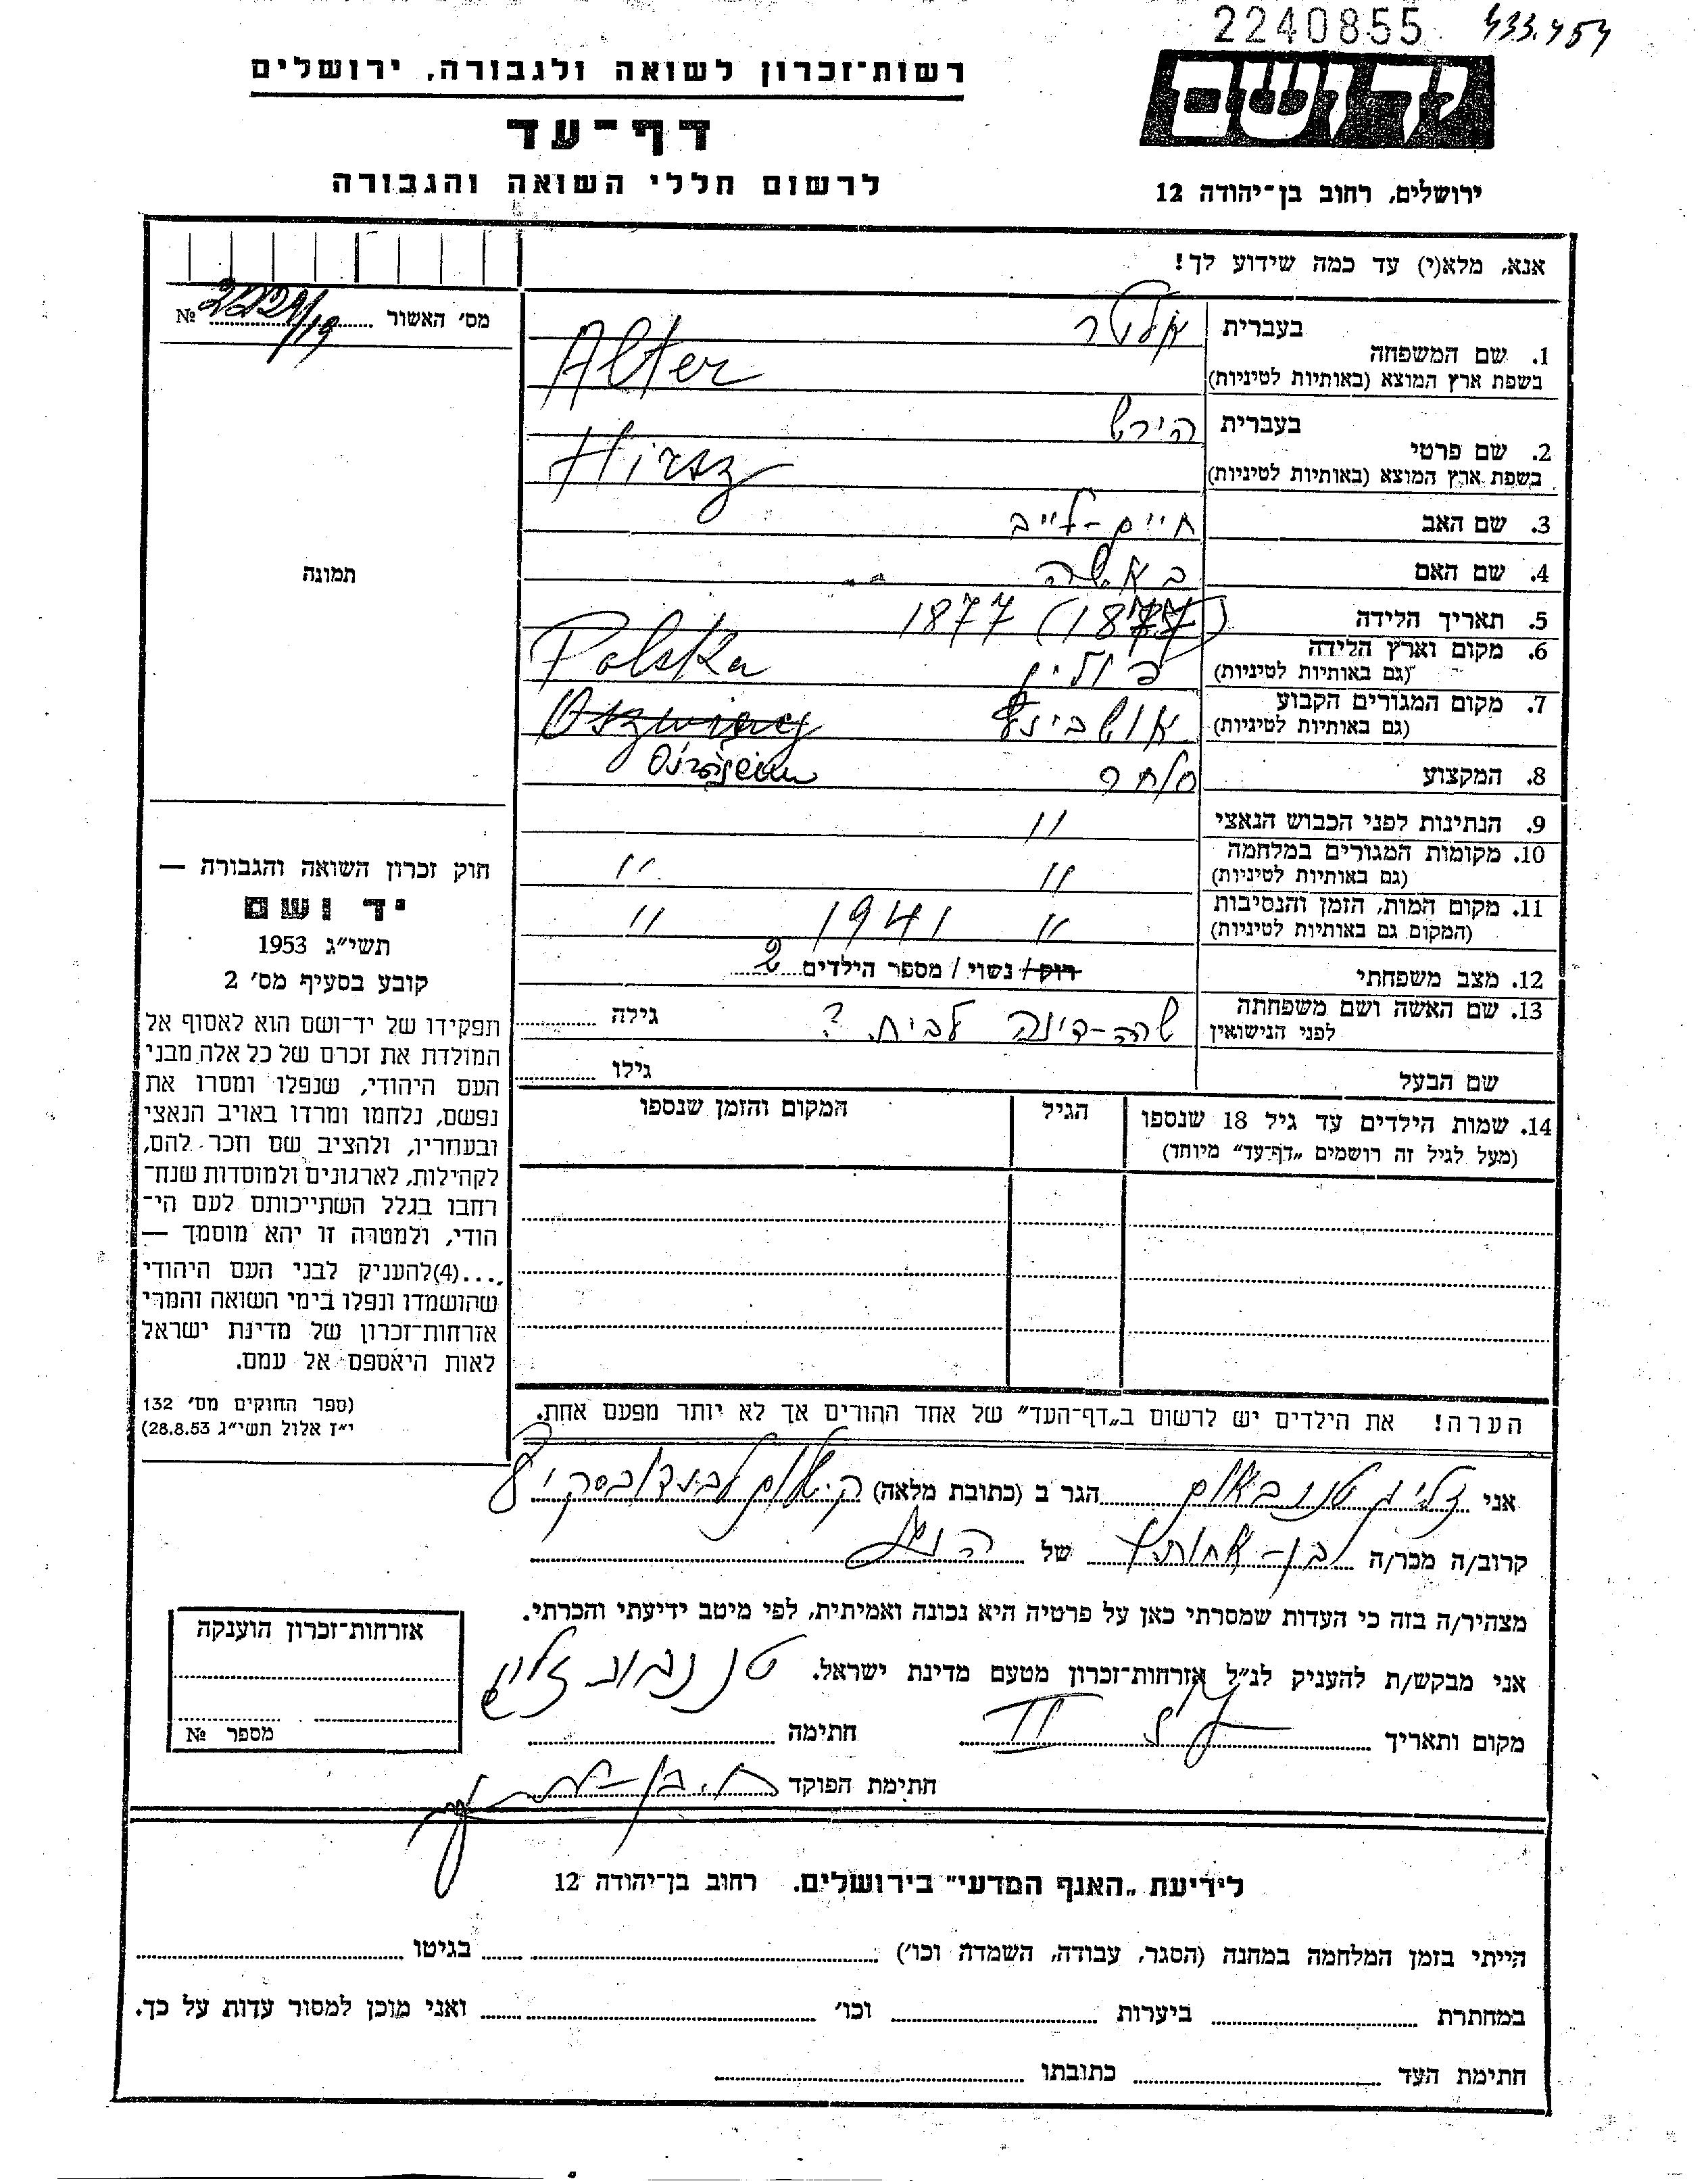 2240855 433.454
רשות־זכרון לשואה ולגבורה, ירושלים
יד ושם
דף־עד
לרשום חללי השואה והגבורה
ירושלים, רחוב בן־יהודה 12
אנא, מלא(י) עד כמה שידוע לך!
מס׳ האשור № /19
1. שם המשפחה
בעברית אלטר
בשפת ארץ המוצא (באותיות לטיניות) Alter
2. שם פרטי
בעברית הירש
בשפת ארץ המוצא (באותיות לטיניות) Hirsz
3. שם האב חיים-לייב
4. שם האם באשה
5. תאריך הלידה (1877) 1877
6. מקום וארץ הלידה פולין Polska
(גם באותיות לטיניות)
7. מקום המגורים הקבוע אושבינצ
(גם באותיות לטיניות)
8. המקצוע סוחר Oświęcim
9. הנתינות לפני הכבוש הנאצי "
10. מקומות המגורים במלחמה " "
(גם באותיות לטיניות)
11. מקום המות, הזמן והנסיבות " 1941 "
(המקום גם באותיות לטיניות)
12. מצב משפחתי רווק / נשוי / מספר הילדים 2
13. שם האשה ושם משפחתה שרה-דינה לבית ? גילה
לפני הנישואין
שם הבעל גילו
14. שמות הילדים עד גיל 18 שנספו הגיל המקום והזמן שנספו
(מעל לגיל זה רושמים „דף־עד״ מיוחד)
הערה! את הילדים יש לרשום ב„דף־העד״ של אחד ההורים אך לא יותר מפעם אחת.
תמונה
חוק זכרון השואה והגבורה —
יד ושם
תשי״ג 1953
קובע בסעיף מס׳ 2
תפקידו של יד־ושם הוא לאסוף אל
המולדת את זכרם של כל אלה מבני
העם היהודי, שנפלו ומסרו את
נפשם, נלחמו ומרדו באויב הנאצי
ובעוזריו, ולהציב שם וזכר להם,
לקהילות, לארגונים ולמוסדות שנח־
רבו בגלל השתייכותם לעם הי־
הודי, ולמטרה זו יהא מוסמך —
„...(4)להעניק לבני העם היהודי
שהושמדו ונפלו בימי השואה והמרי
אזרחות־זכרון של מדינת ישראל
לאות היאספם אל עמם.
(ספר החוקים מס׳ 132
י״ז אלול תשי״ג 28.8.53)
אני זליג טננבאום הגר ב (כתובת מלאה)
קרוב/ה מכר/ה בן-אחותו של הנ״ל
מצהיר/ה בזה כי העדות שמסרתי כאן על פרטיה היא נכונה ואמיתית, לפי מיטב ידיעתי והכרתי.
אני מבקש/ת להעניק לנ״ל אזרחות־זכרון מטעם מדינת ישראל.
מקום ותאריך חתימה
חתימת הפוקד
אזרחות־זכרון הוענקה
מספר №
לידיעת „האגף המדעי״ בירושלים. רחוב בן־יהודה 12
הייתי בזמן המלחמה במחנה (הסגר, עבודה, השמדה וכו׳) בגיטו
במחתרת ביערות וכו׳ ואני מוכן למסור עדות על כך.
חתימת העד כתובתו